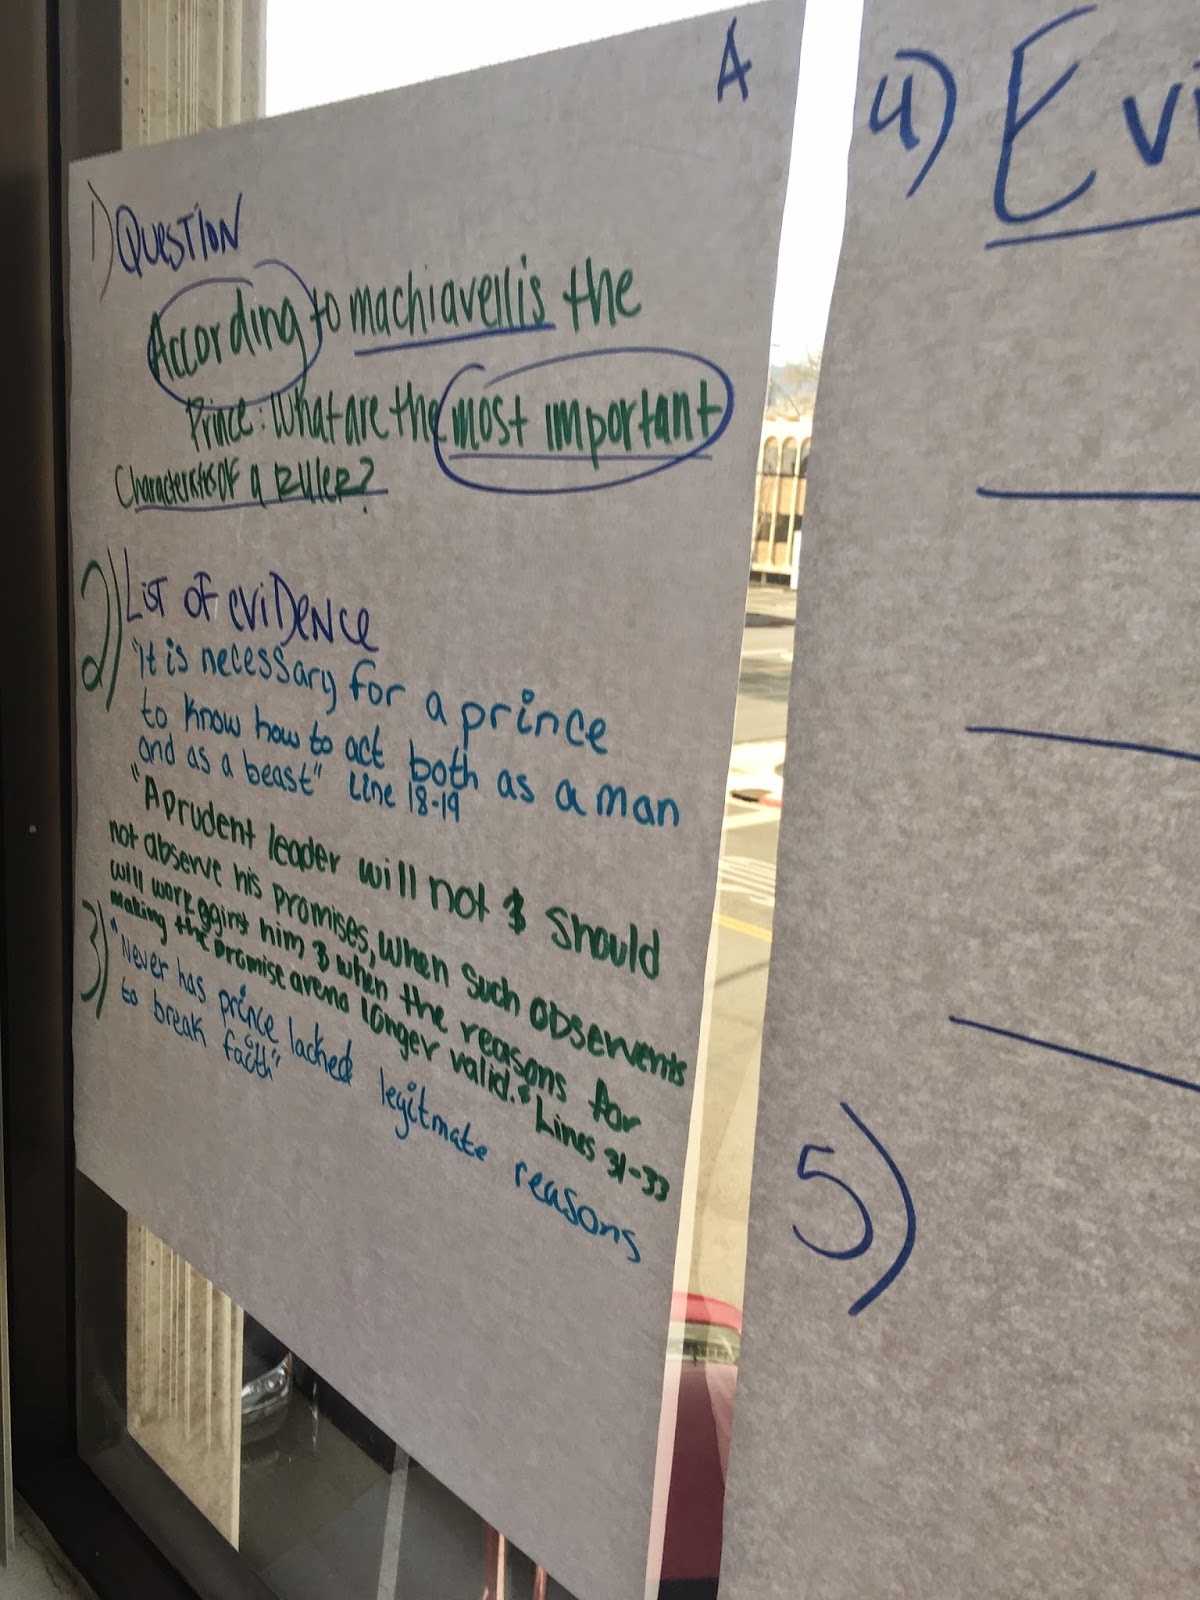 A
1) QUESTION
According to machiavellis the
Prince: What are the most important
Characteristcs of a RULER?
2) LIST OF EVIDENCE
"It is necessary for a prince
to know how to act both as a man
and as a beast" Line 18-19
"A prudent leader will not & should
not observe his promises, when such observents
will work against him & when the reasons for
making the promise are no longer valid." Lines 31-33
3) "Never has prince lacked legitmate reasons
to break faith"
4) Evi
5)